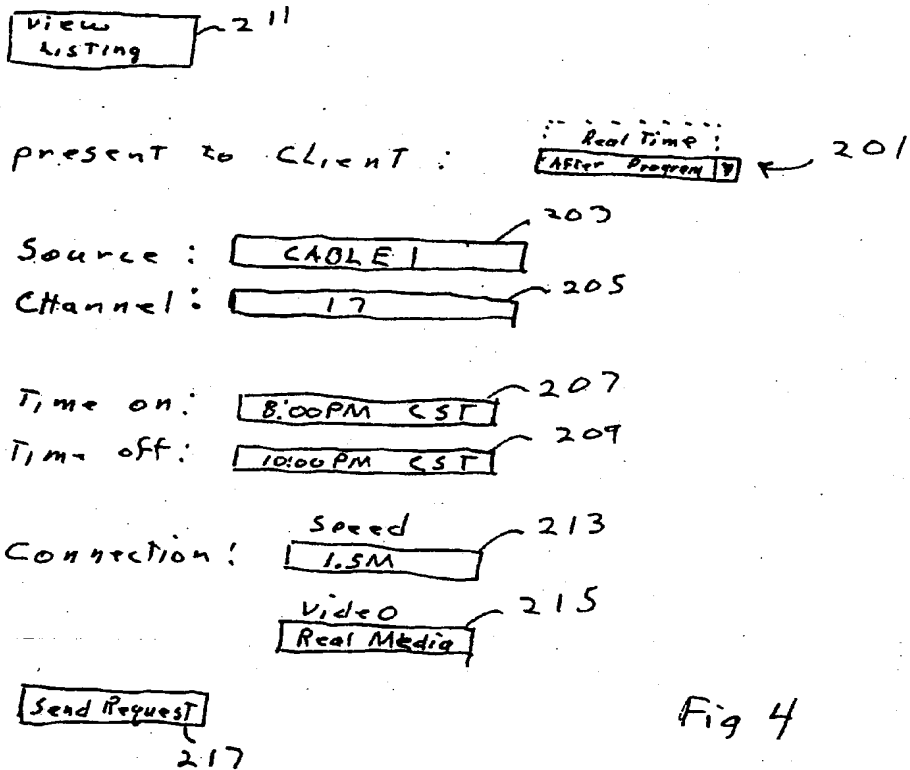 View
Listing
211
present to Client :
Real Time
After Program
201
Source :
CABLE 1
203
Channel :
17
205
Time on :
8:00PM CST
207
Time off :
10:00 PM CST
209
Connection :
Speed
1.5M
213
Video
Real Media
215
Send Request
217
Fig 4